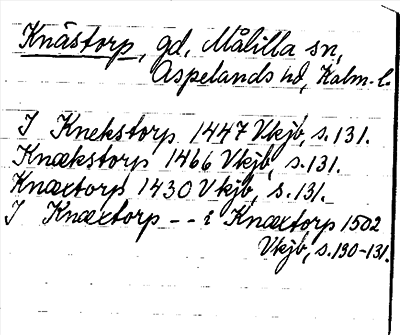 Knästorp, gd, Målilla sn,
Aspelands hd, Kalm. l.
I Knekstorp 1447 Vkjb, s. 131.
Knækstorp 1466 Vkjb, s. 131.
Knæxtorp 1430 Vkjb, s. 131.
I Knæxtorp -- i Knæxtorp 1502
Vkjb, s. 130-131.